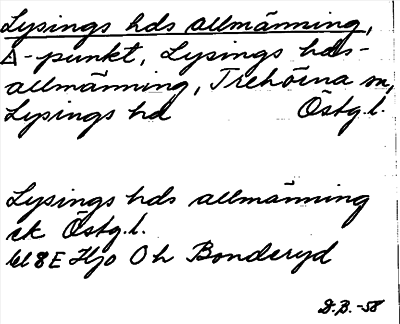 Lysings hds allmänning,
Δ-punkt, Lysings hds-
allmänning, Trehörna sn,
Lysings hd Östg.l.
Lysings hds allmänning
ek Östg.l.
bl 8 E Hjo Öh Bonderyd
D.B. -58